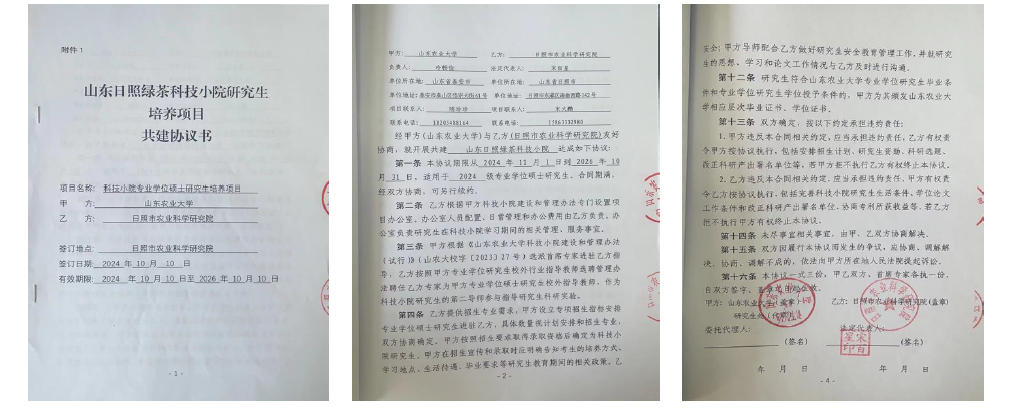 附件 1
山东日照绿茶科技小院研究生
培养项目
共建协议书
项目名称: 科技小院专业学位硕士研究生培养项目
甲 方: 山东农业大学
乙 方: 日照市农业科学研究院
签订地点: 日照市农业科学研究院
签订日期: 2024 年 10 月 10 日
有效期限: 2024 年 10 月 10 日至 2026 年 10 月 10 日
- 1 -
甲方: 山东农业大学 乙方: 日照市农业科学研究院
负责人: 法定代表人: 宋百星
单位所在地: 山东省泰安市 单位所在地: 山东省日照市
单位地址: 泰安市泰山区岱宗大街 61 号 单位地址:
项目联系人: 项目联系人:
联系电话: 联系电话:
经甲方(山东农业大学)与乙方(日照市农业科学研究院)友好
协商, 就开展共建 山东日照绿茶科技小院 达成如下协议:
第一条 本协议期限从 2024 年 11 月 1 日到 2026 年 10
月 31 日, 适用于 2024 级专业学位硕士研究生。合同期满,
经双方协商, 可另行续约。
第二条 乙方根据甲方科技小院建设和管理办法专门设置项
目办公室, 办公室人员配置、日常管理和办公费用由乙方负责。办
公室负责研究生在科技小院学习期间的相关管理、服务事宜。
第三条 甲方根据《山东农业大学科技小院建设和管理办法
(试行)》(山农大校字〔2023〕27 号) 选派首席专家进驻乙方指
导, 乙方按照甲方专业学位研究生校外行业指导教师选聘管理办
法聘任乙方专家为甲方专业学位硕士研究生校外指导教师, 作为
科技小院研究生的第二导师参与指导研究生科研实验。
第四条 乙方提供招生专业需求, 甲方设立专项招生指标安排
专业学位硕士研究生进驻乙方, 具体数量视计划安排和招生专业,
双方协商确定。甲方按照招生要求取得录取资格后确定为科技小
院研究生。甲方在招生宣传和录取时应明确告知考生的培养方式、
学习地点、生活待遇、毕业要求等研究生教育期间的相关政策。乙
- 2 -
安全; 甲方导师配合乙方做好研究生安全教育管理工作, 并就研究
生的思想、学习和论文工作情况与乙方及时进行沟通。
第十二条 研究生符合山东农业大学专业学位研究生毕业条
件和专业学位研究生学位授予条件的, 甲方为其颁发山东农业大
学相应层次毕业证书、学位证书。
第十三条 双方确定, 按以下约定承担违约责任:
1. 甲方违反本合同相关约定, 应当承担违约责任, 乙方有权责
令甲方按协议执行, 包括安排招生计划、研究生资助、科研选题、
改正科研产出署名单位等, 若甲方拒不执行乙方有权终止本协议。
2. 乙方违反本合同相关约定, 应当承担违约责任, 甲方有权责
令乙方按协议执行, 包括完善科技小院研究生生活条件、学位论文
工作条件和改正科研产出署名单位、协商专利所获收益等, 若乙方
拒不执行甲方有权终止本协议。
第十四条 未尽事宜相关事宜, 由甲、乙双方协商解决。
第十五条 双方因履行本协议而发生的争议, 应协商、调解解
决。协商、调解不成的, 依法向甲方所在地人民法院提起诉讼。
第十六条 本协议一式三份, 甲乙双方、首席专家各执一份,
自双方签字、盖章之日起生效。
甲方: 山东农业大学(盖章) 乙方: 日照市农业科学研究院(盖章)
研究生处(代章)
委托代理人: 法定代表人:
(签名) (签名)
年 月 日 年 月 日
- 4 -